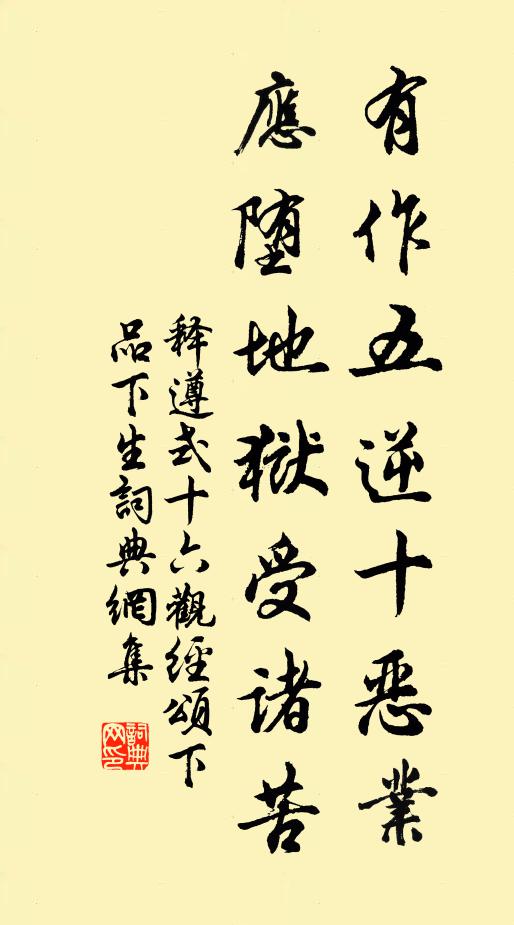 有作五逆十惡業
應堕地獄受諸苦
释遵式十六觀經頌下
品下生詞典網集
詞典网印